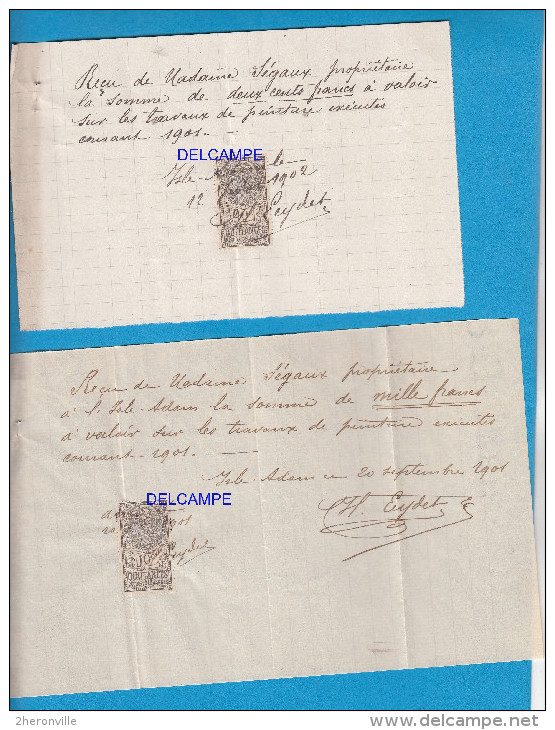 Reçu de Madame Ségaux propriétaire
la somme de deux cents francs à valoir
sur les travaux de peinture exécutés
courant 1901. —
DELCAMPE
Isle- le
12 1902
Eydet
QUITTANCES
Reçu de Madame Ségaux propriétaire
à l'Isle-Adam la somme de mille francs
à valoir sur les travaux de peinture exécutés
courant 1901. —
Isle-Adam le 20 septembre 1901
DELCAMPE
1901
H. Eydet
Eydet
10c
QUITTANCES
2heronville
delcampe.net